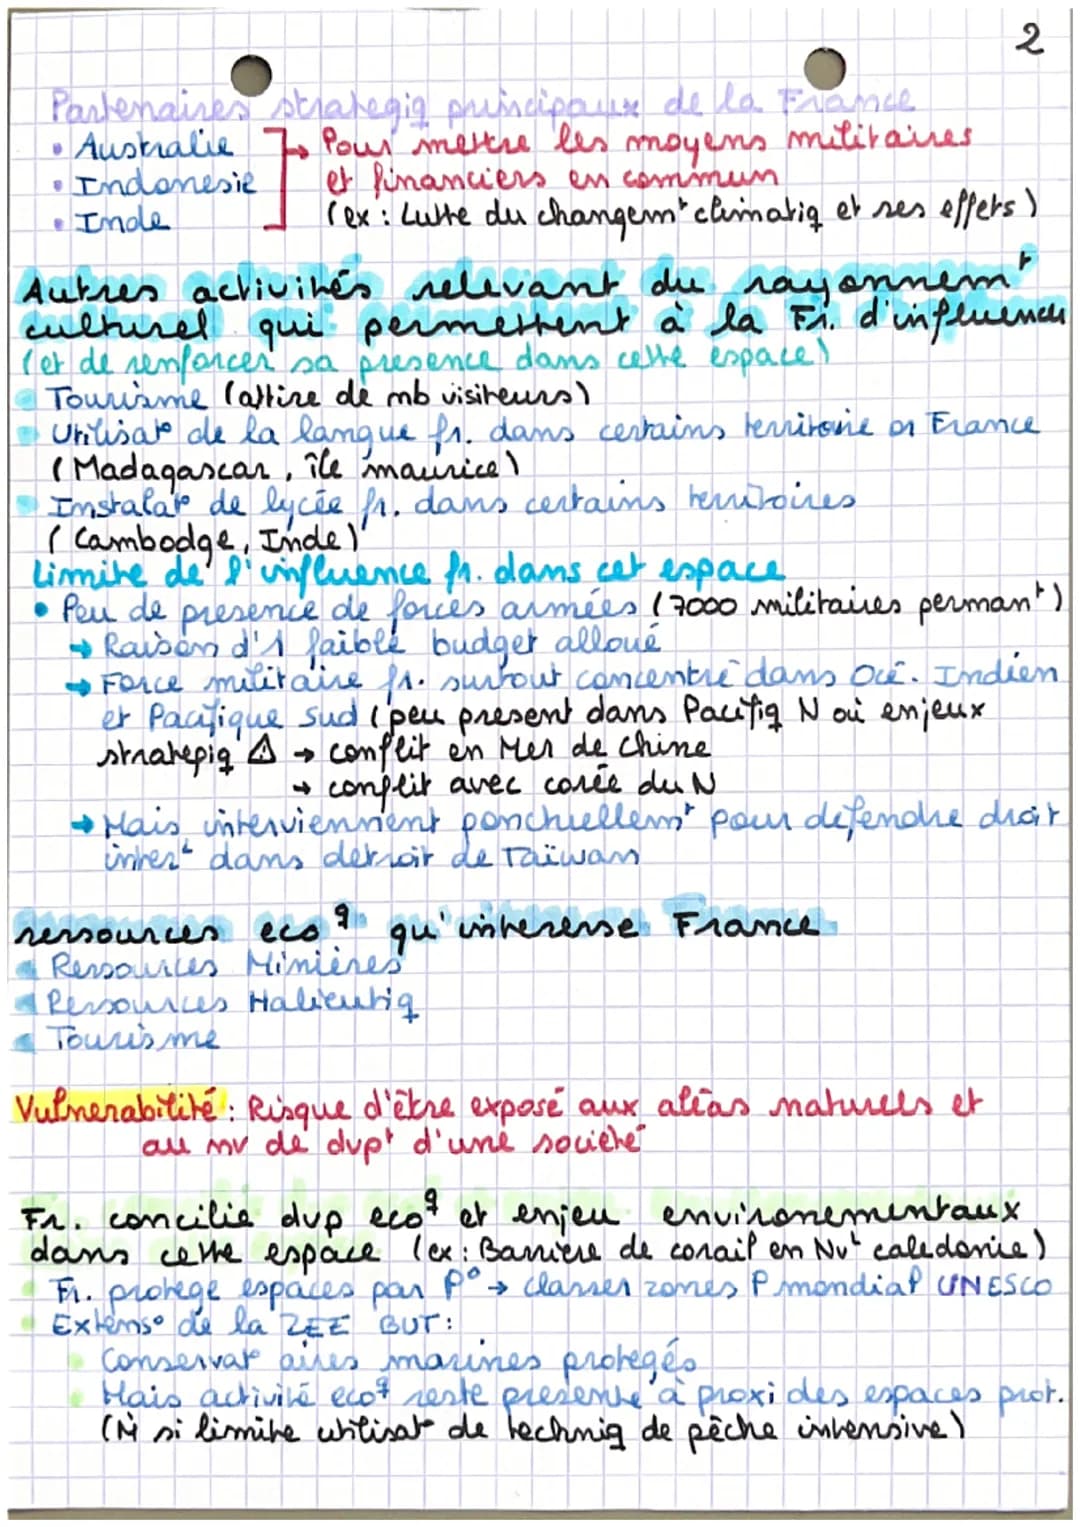 2
Partenaires strategiq principaux de la France
• Australie → Pour mettre les moyens militaires
• Indonesie et financiers en commun
• Inde (ex : Lutte du changemt climatiq et ses effets)
Autres activités relevant du rayonnemt
culturel qui permettent à la Fr. d'influence
(et de renforcer sa presence dans cette espace)
Tourisme (attire de nb visiteurs)
Utilisat° de la langue fr. dans certains territoire or France
(Madagascar, île maurice)
Instalat° de lycée fr. dans certains territoires
(Cambodge, Inde)
Limite de l'influence fr. dans cet espace
• Peu de presence de forces armées (7000 militaires permant)
→ Raison d'1 faible budget alloué
→ Force militaire fr. surtout concentré dans Océ. Indien
et Pacifique Sud (peu present dans Pacifiq N où enjeux
strategiq ⚠ → conflit en Mer de Chine
→ conflit avec corée du N
→ Mais interviennent ponctuellemt pour defendre droit
intert dans detroit de Taïwan
ressources ecoq qu'interesse France
Ressources Minières
Ressources Halieutiq
Tourisme
Vulnerabilité : Risque d'être exposé aux aléas naturels et
au nv de dvpt d'une société
Fr. concilie dvp ecoq et enjeu environementaux
dans cette espace (ex : Barriere de corail en Nvt caledonie)
Fr. protege espaces par P° → classer zones P mondial UNESCO
Extens° de la ZEE BUT :
Conservat° aires marines protegés
Mais activité ecoq reste presente à proxi des espaces prot.
(M̂ si limite utilisat° de techniq de pêche intensive)